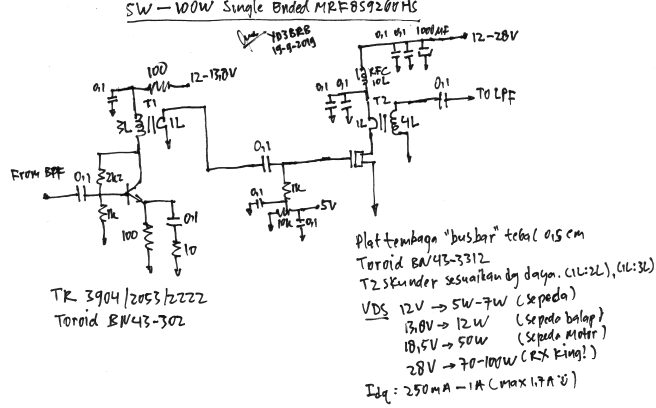 5W – 100W Single Ended MRF8S9260HS
YD3BRB
19-9-2019
0,1 0,1 1000µF
12-28V
100
12-13,8V
0,1
T1
3L 1L
RFC
10L
0,1 0,1
T2
1L 4L
0,1
TO LPF
From BPF
0,1
2k2
1k
100
0,1
10
0,1
1k
0,1
10k
5V
0,1
TR 3904/2053/2222
Toroid BN43-302
Plat tembaga "busbar" tebal 0,5 cm
Toroid BN43-3312
T2 skunder sesuaikan dg daya. (1L:2L), (1L:3L)
VDS 12V → 5W-7W (sepeda)
13,8V → 12W (sepeda balap)
18,5V → 50W (sepeda motor)
28V → 70-100W (RX King!)
Idq : 250mA – 1A (max 1,7A ü)